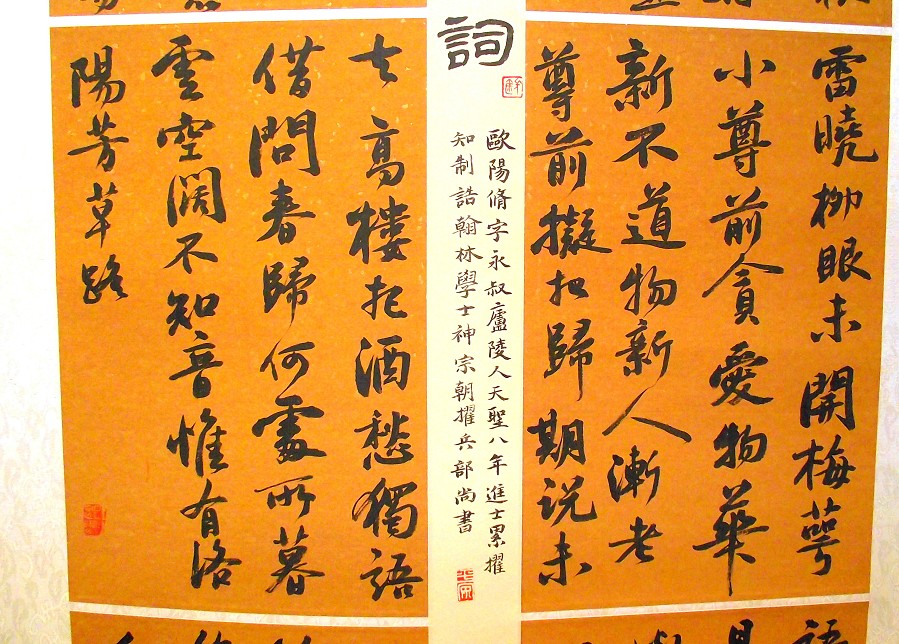 雷曉柳眼未開梅萼
小尊前貪愛物華
新不道物新人漸老
尊前擬把歸期説未
詞
歐陽脩字永叔廬陵人天聖八年進士累擢
知制誥翰林學士神宗朝擢兵部尚書
去高樓把酒愁獨語
借問春歸何處所暮
雲空闊不知音惟有洛
陽芳草路